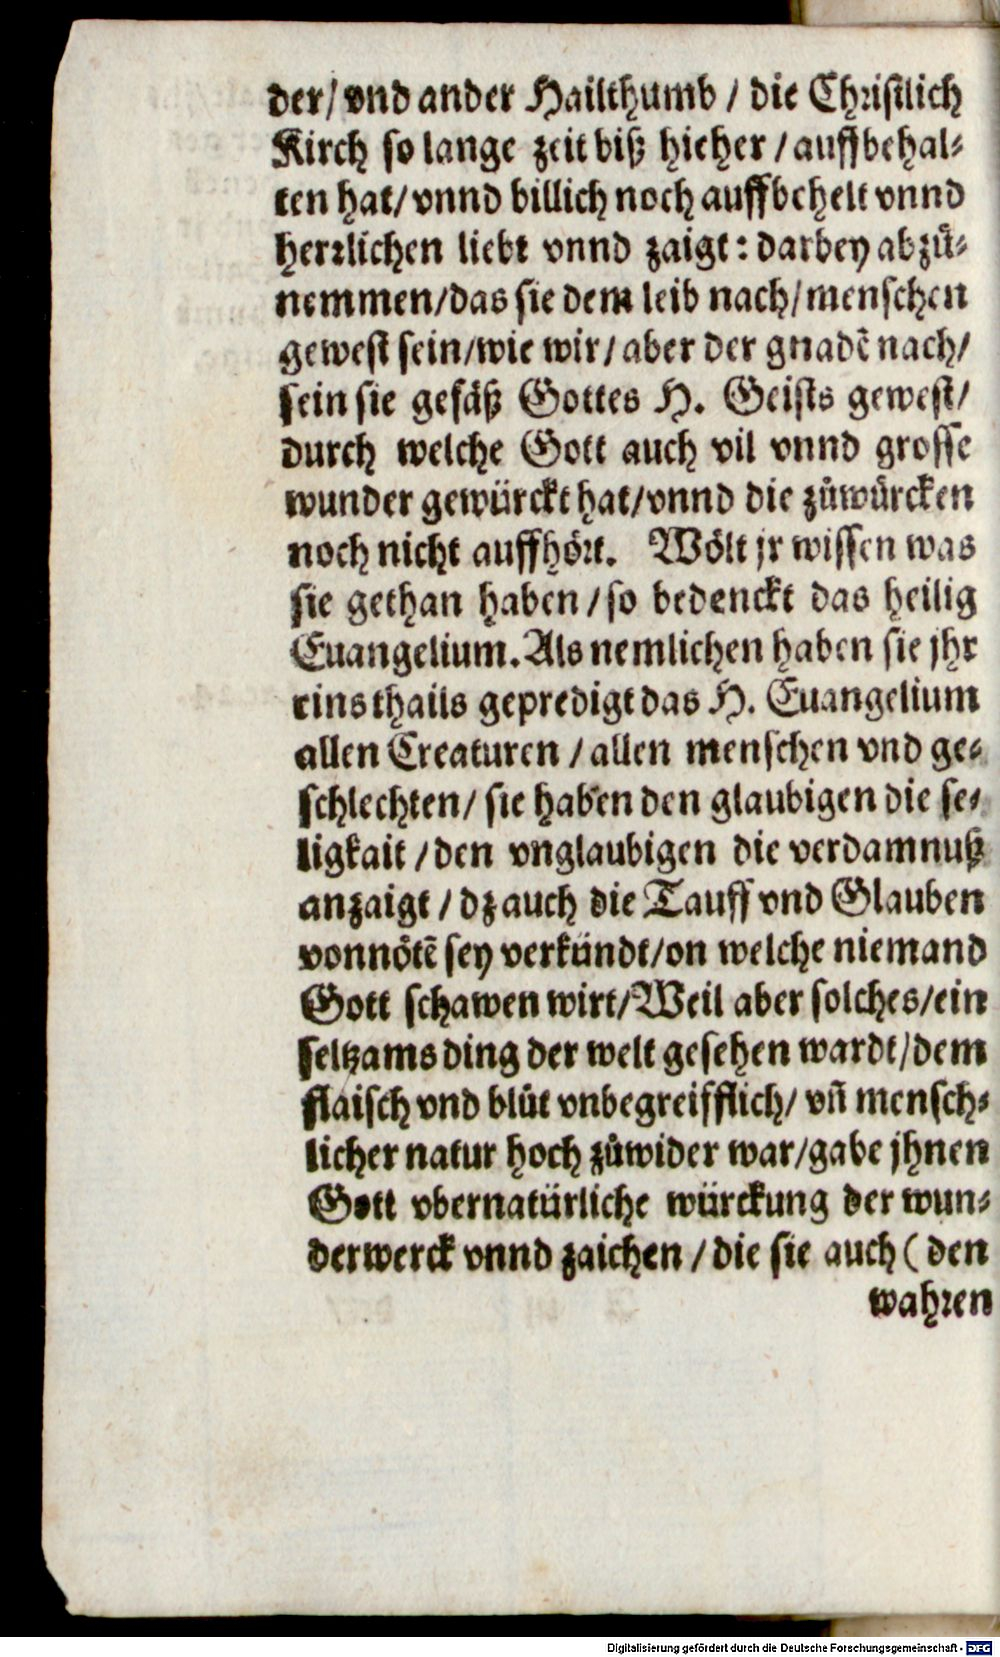 der/ vnd ander Hailthumb / die Christlich
Kirch so lange zeit biß hieher / auffbehal-
ten hat/ vnnd billich noch auffbehelt vnnd
herrlichen liebt vnnd zaigt: darbey abzů-
nemmen/das sie dem leib nach/menschen
gewest sein/wie wir/ aber der gnadẽ nach/
sein sie gefäß Gottes H. Geists gewest/
durch welche Gott auch vil vnnd grosse
wunder gewürckt hat/vnnd die zůwürcken
noch nicht auffhört. Wölt jr wissen was
sie gethan haben / so bedenckt das heilig
Euangelium. Als nemlichen haben sie jhr
eins thails gepredigt das H. Euangelium
allen Creaturen / allen menschen vnd ge-
schlechten/ sie haben den glaubigen die se-
ligkait / den vnglaubigen die verdamnuß
anzaigt / dz auch die Tauff vnd Glauben
vonnötẽ sey verkündt/on welche niemand
Gott schawen wirt/Weil aber solches/ein
seltzams ding der welt gesehen wardt/dem
flaisch vnd blůt vnbegreifflich/ vñ mensch-
licher natur hoch zůwider war/gabe jhnen
Gott vbernatürliche würckung der wun-
derwerck vnnd zaichen / die sie auch ( den
wahren
Digitalisierung gefördert durch die Deutsche Forschungsgemeinschaft - DFG